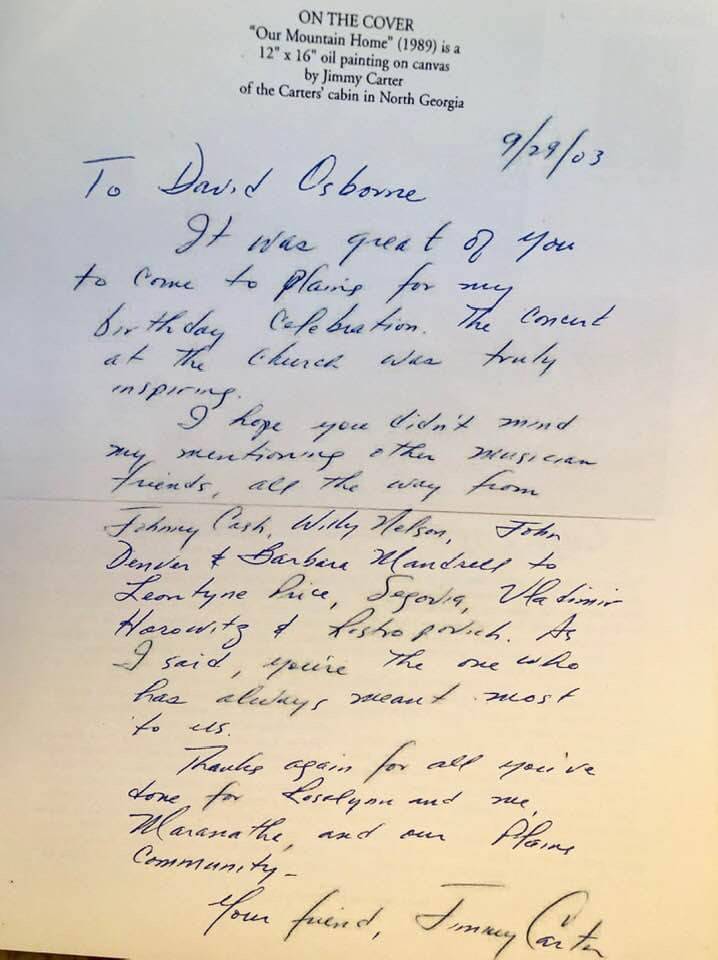 ON THE COVER
"Our Mountain Home" (1989) is a
12" x 16" oil painting on canvas
by Jimmy Carter
of the Carters' cabin in North Georgia
9/29/03
To David Osborne
It was great of you
to come to Plains for my
birthday celebration. The concert
at the church was truly
inspiring.
I hope you didn't mind
my mentioning other musician
friends, all the way from
Johnny Cash, Willy Nelson, John
Denver & Barbara Mandrell to
Leontyne Price, Segovia, Vladimir
Horowitz & Rostropovich. As
I said, you're the one who
has always meant most
to us.
Thanks again for all you've
done for Rosalynn and me,
Maranatha, and our Plains
community –
Your friend, Jimmy Carter